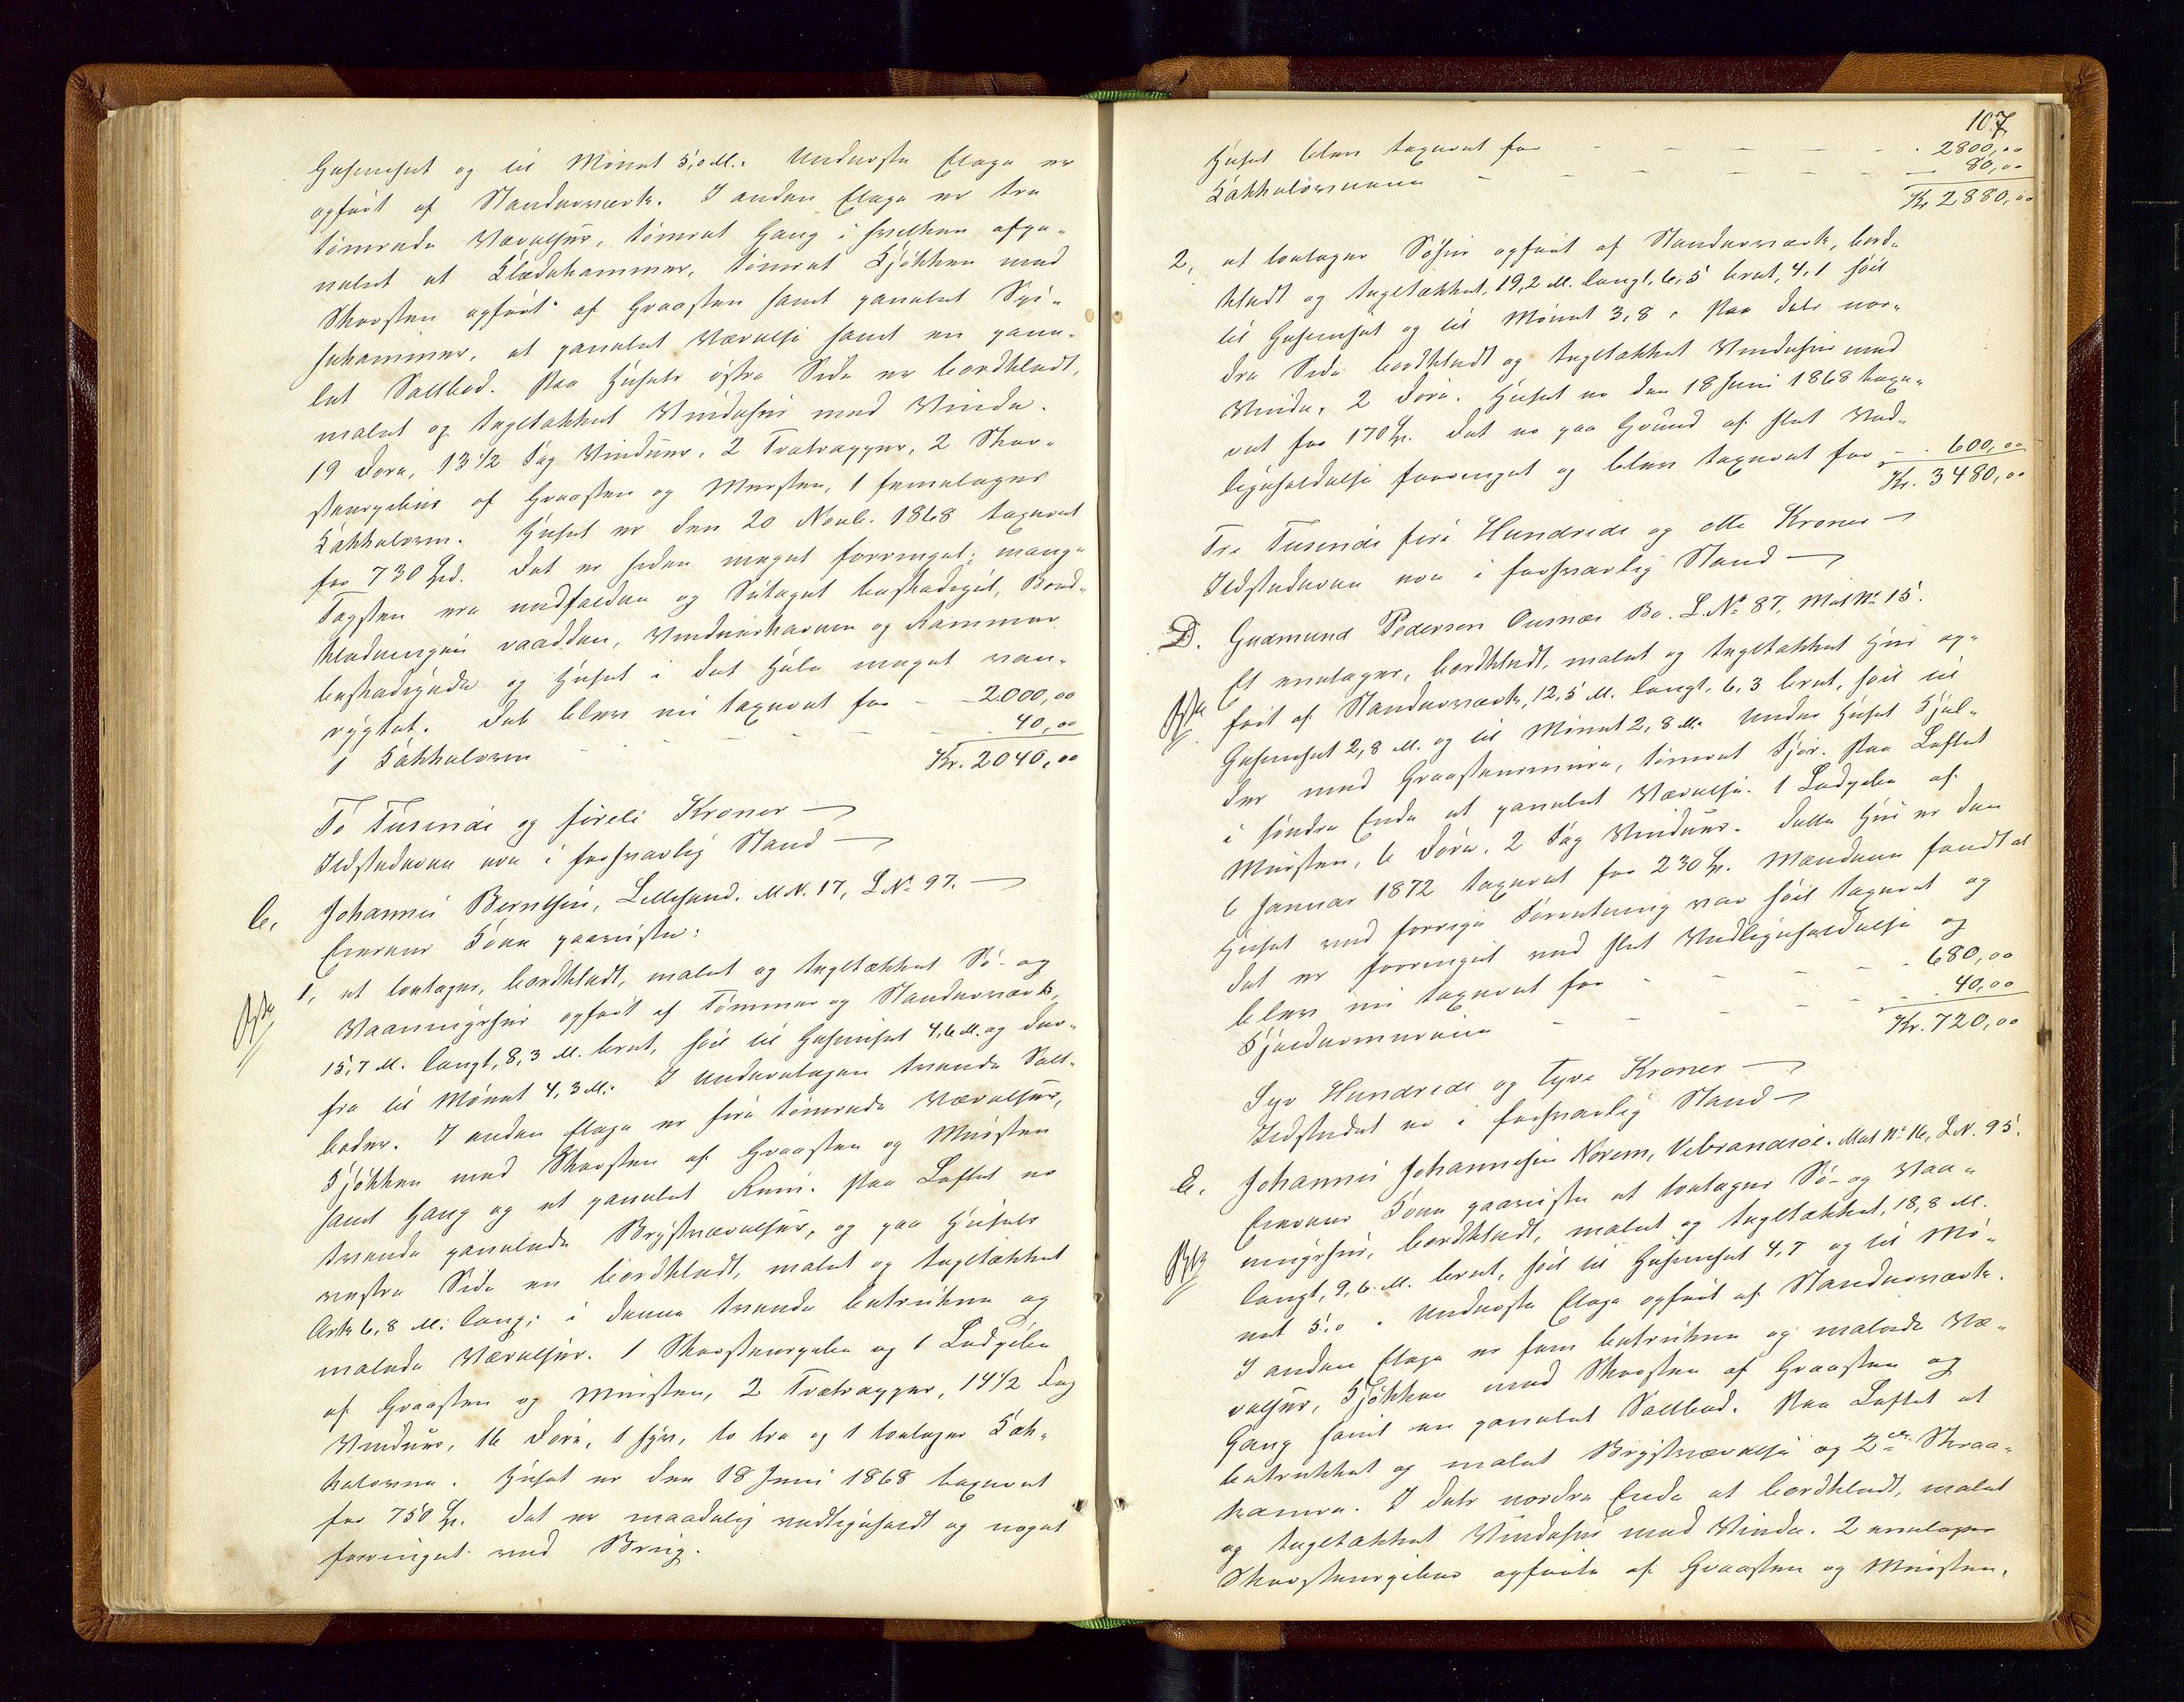 Gesimset og til Mønet 5,0 M. Underste Etage er
opført af Standerværk. I anden Etage er tre
tømrede Værelser, tømret Gang i hvilken afpa-
nelet et Klædekammer, tømret Kjøkken med
Skorsten opført af Graasten samt panelet Spi-
sekammer, et panelet Værelse samt en pane-
let Saltbod. Paa Husets østre Side er bordklædt,
malet og tegltækket Vindehus med Vinde.
19 Døre, 13 1/2 Fag Vinduer, 2 Trætrapper, 2 Skor-
stenspiber af Graasten og Mursten, 1 femetages
Kakkelovn. Huset er den 20 Novb. 1868 taxeret
for 730 Spd. Det er siden meget forringet; mange
Tagsten ere nedfaldne og Sutaget beskadiget, Bord-
klædningen raadden, Vindueskarme og Rammer
beskadigede og Huset i det Hele meget van-
rygtet. Det blev nu taxeret for - 2000,00
1 Kakkelovn - - - - 40,00
Kr. 2040,00
To Tusinde og førti Kroner
Ildstederne ere i forsvarlig Stand
C. Johannes Berntsen, Lillesund. M.N. 17, L.No 97.
Eieren Kone paaviste:
1, et toetages, bordklædt, malet og tegltækket Sø- og
Vaaningshus opført af Tømmer og Standerværk,
15,7 M. langt, 8,3 M. bredt, høit til Gesimset 4,6 M. og der-
fra til Mønet 4,3 M. I Underetagen tvende Salt-
boder. I anden Etage er fire tømrede Værelser,
Kjøkken med Skorsten af Graasten og Mursten
samt Gang og et panelet Rum. Paa Loftet er
tvende panelede Brystværelser, og paa Husets
vestre Side en bordklædt, malet og tegltækket
Ark 6,8 M. lang; i denne tvende betrukne og
malede Værelser. 1 Skorstenspibe og 1 Ledpibe
af Graasten og Mursten, 2 Trætrapper, 14 1/2 Fag
Vinduer, 16 Døre, 1 fyr, to tre og 1 toetages Kak-
kelovne. Huset er den 18 Juni 1868 taxeret
for 750 Sp. Det er maadelig vedligeholdt og noget
forringet ved Brug.
107
Huset blev taxeret for - - - 2800,00
Kakkelovnene - - - 80,00
Kr. 2880,00
2, et toetages Søhus opført af Standerværk, bord-
klædt og tegltækket, 19,2 M. langt, 6,5 bredt, 4,1 høit
til Gesimset og til Mønet 3,8. Paa dets nor-
dre Side bordklædt og tegltækket Vindehus med
Vinde, 2 Døre. Huset er den 18 Juni 1868 taxe-
ret for 170 Sp. Det er paa Grund af slet Ved-
ligeholdelse forringet og blev taxeret for - 600,00
Kr. 3480,00
Tre Tusinde fire Hundrede og otte Kroner
Ildstederne ere i forsvarlig Stand
D. Gudmund Pedersen Ousnæs Bo. L.No 87, Mat No 15.
Et enetages, bordklædt, malet og tegltækket Hus op-
ført af Standerværk, 12,5 M. langt, 6,3 bredt, høit til
Gesimset 2,8 M. og til Mønet 2,8 M. Under Huset Kjæl-
der med Graastensmure, tømret Fjøs. Paa Loftet
i søndre Ende et panelet Værelse. 1 Ledpibe af
Mursten, 6 Døre, 2 Fag Vinduer. Dette Hus er den
6 Januar 1872 taxeret for 230 Sp. Mændene fandt at
Huset ved forrige Forretning var høit taxeret og
det er forringet ved slet Vedligeholdelse og
blev nu taxeret for - - - 680,00
Kjældermurene - - - 40,00
Kr. 720,00
Syv Hundrede og tyve Kroner
Ildstedet er i forsvarlig Stand
E. Johannes Johannesen Norem, Vibrandsøe. Mat No 16, L.N. 95.
Eierens Kone paaviste et toetages Sø- og Vaa-
ningshus, bordklædt, malet og tegltækket, 18,8 M.
langt, 9,6 M. bredt, høit til Gesimset 4,7 og til Mø-
net 5,0. Underste Etage opført af Standerværk.
I anden Etage er fem betrukne og malede Væ-
relser, Kjøkken med Skorsten af Graasten og
Gang samt en panelet Saltbod. Paa Loftet et
betrukket og malet Brystværelse og 2de Skraa-
kamre. I dets nordre Ende et bordklædt, malet
og tegltækket Vindehus med Vinde. 2 enetages
Skorstenspiber opførte af Graasten og Mursten,